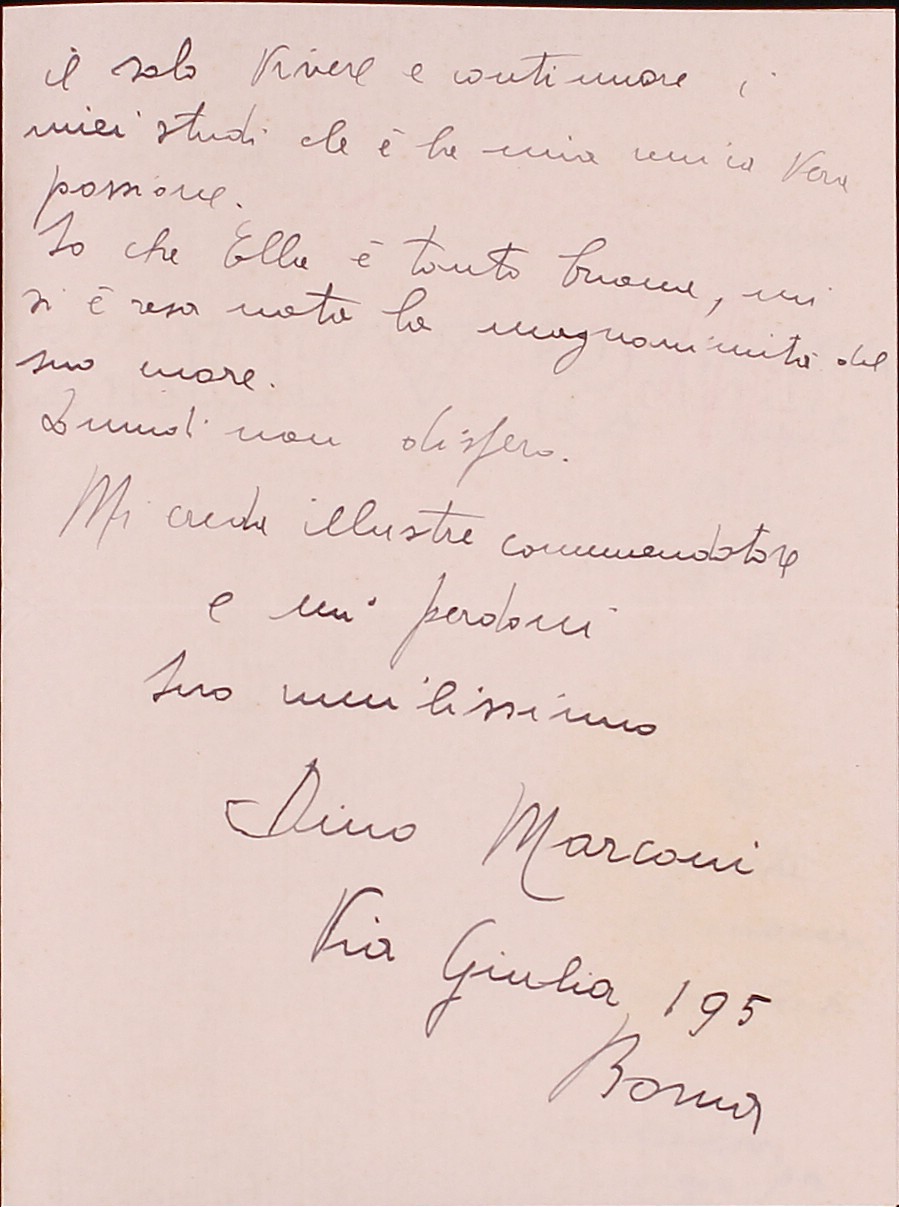 il solo vivere e continuare i
miei studi che è la mia unica vera
passione.
So che Ella è tanto buona, mi
si è resa nota la magnanimità del
suo
Quindi non dispero.
Mi creda illustre commendatore
e mi perdoni
Suo umilissimo
Dino Marconi
Via Giulia 195
Roma